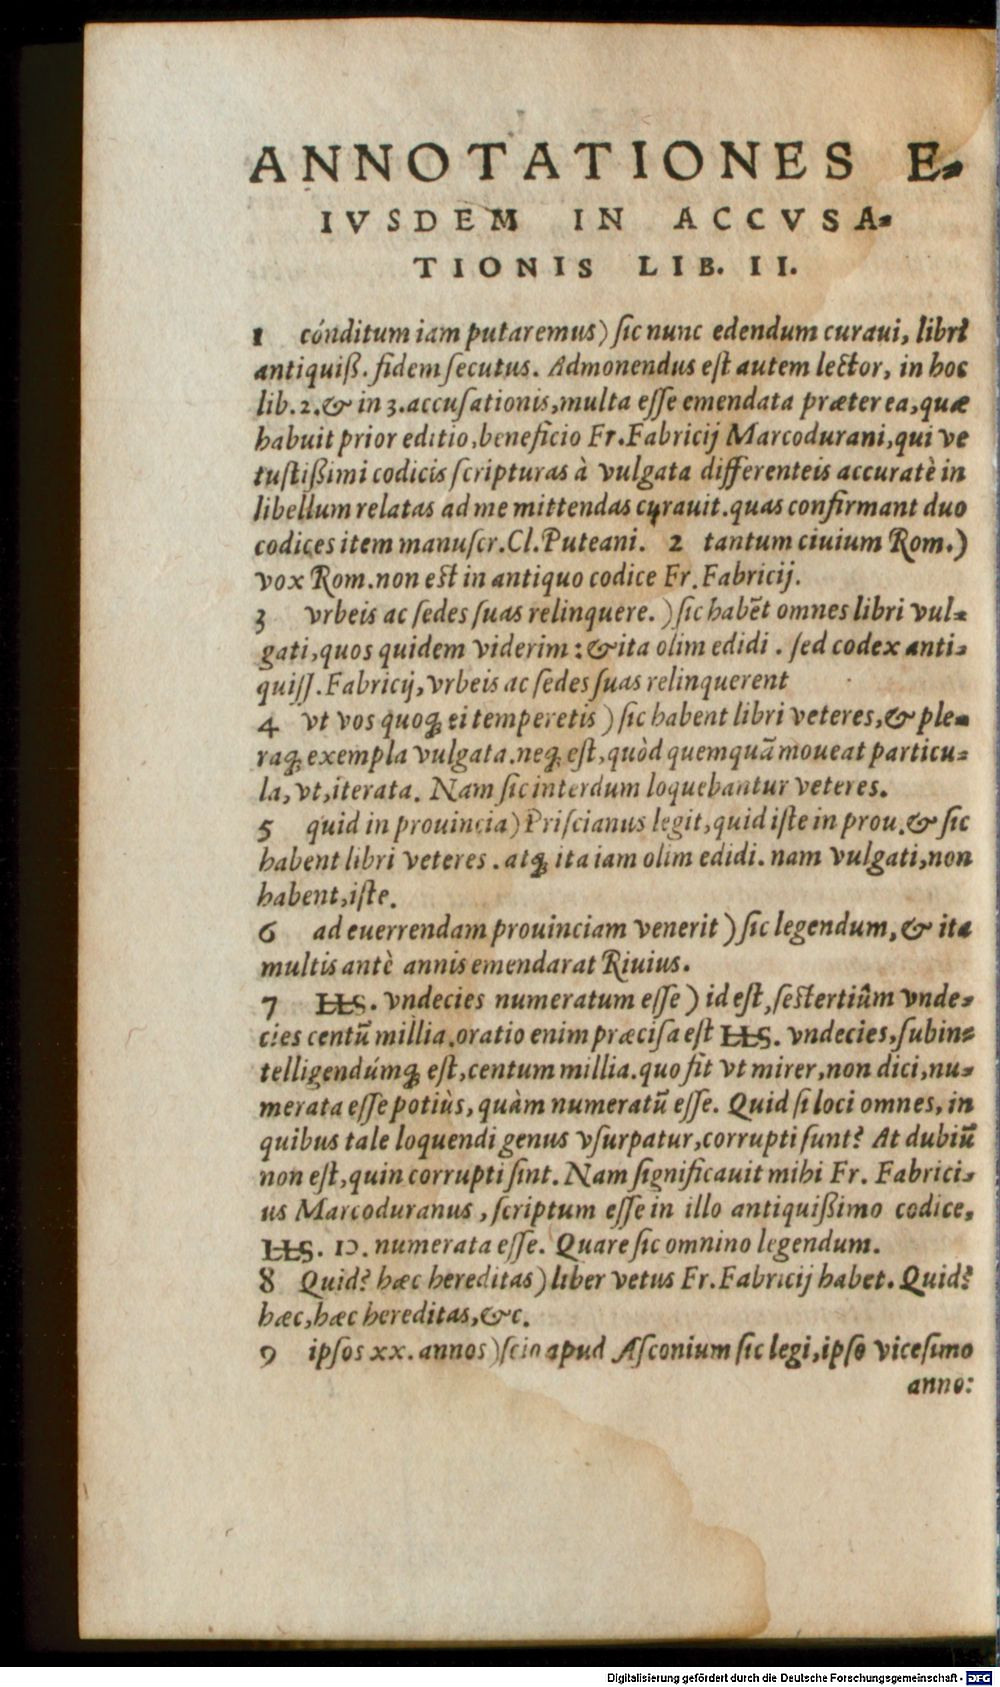 ANNOTATIONES E-
IVSDEM IN ACCVSA-
TIONIS LIB. II.
1 cónditum iam putaremus) sic nunc edendum curaui, libri
antiquiß. fidem secutus. Admonendus est autem lector, in hoc
lib. 2. & in 3. accusationis, multa esse emendata præter ea, quæ
habuit prior editio, beneficio Fr. Fabricij Marcodurani, qui ve
tustißimi codicis scripturas à vulgata differenteis accuratè in
libellum relatas ad me mittendas curauit. quas confirmant duo
codices item manuscr. Cl. Puteani. 2 tantum ciuium Rom.)
vox Rom. non est in antiquo codice Fr. Fabricij.
3 vrbeis ac sedes suas relinquere. ) sic habẽt omnes libri vul-
gati, quos quidem viderim : & ita olim edidi . sed codex anti-
quiss. Fabricij, vrbeis ac sedes suas relinquerent
4 vt vos quoq; ei temperetis ) sic habent libri veteres, & ple-
raq; exempla vulgata. neq; est, quòd quemquã moueat particu-
la, vt, iterata. Nam sic interdum loquebantur veteres.
5 quid in prouincia) Priscianus legit, quid iste in prou. & sic
habent libri veteres . atq; ita iam olim edidi. nam vulgati, non
habent, iste.
6 ad euerrendam prouinciam venerit ) sic legendum, & ita
multis antè annis emendarat Riuius.
7 LLS. vndecies numeratum esse) id est, sestertiûm vnde-
cies centũ millia. oratio enim præcisa est LLS. vndecies, subin-
telligendúmq; est, centum millia. quo fit vt mirer, non dici, nu-
merata esse potiùs, quàm numeratũ esse. Quid si loci omnes, in
quibus tale loquendi genus vsurpatur, corrupti sunt? At dubiũ
non est, quin corrupti sint. Nam significauit mihi Fr. Fabrici-
us Marcoduranus , scriptum esse in illo antiquißimo codice,
LLS. IↃ. numerata esse. Quare sic omnino legendum.
8 Quid? hæc hereditas) liber vetus Fr. Fabricij habet. Quid?
hæc, hæc hereditas, &c.
9 ipsos xx. annos) scio apud Asconium sic legi, ipso vicesimo
anno:
Digitalisierung gefördert durch die Deutsche Forschungsgemeinschaft - DFG